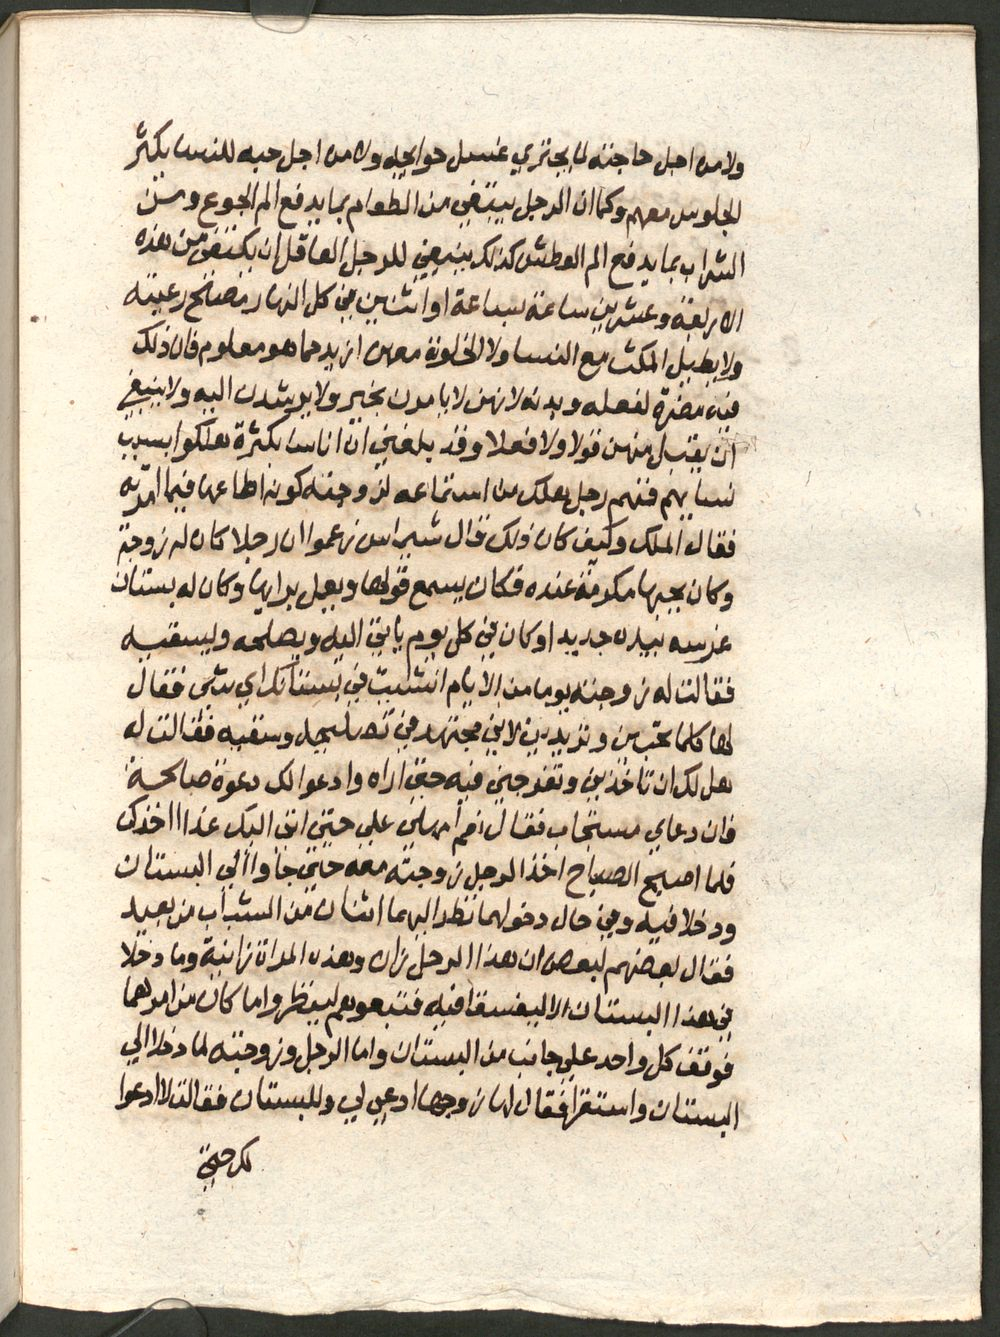 ولا من اجل حاجته لما يجتزي غسل حوايجه ولا من اجل حبه للنسا يكثر
الجلوس معهم وكما ان الرجل يبتغي من الطعام بما يدفع الم الجوع ومن
الشراب بما يدفع الم العطش كذلك ينبغي للرجل العاقل ان يكتفي من هذه
الاربعة وعشرين ساعة بساعة او اثنين في كل النهار مصالح رعيته
ولا يطيل المكث مع النسا ولا الخلوة معهن ازيد مما هو معلوم فان ذلك
فيه مضرة لفعله وبدنه لانهن لا يامرن بخير ولا يرشدن اليه ولا ينبغي
ان يقبل منهن قولا ولا فعلا وقد بلغني ان اناسا بكثرة هلكوا بسبب
نسايهم فمنهم رجل هلك من استماعه لزوجته كونه اطاعها فيما امرته
فقال الملك وكيف كان ذلك قال شيراس زعموا ان رجلا كان له زوجة
وكان يحبها مكرمة عنده فكان يسمع قولها ويعمل برايها وكان له بستان
غرسه بيده جديدا وكان في كل يوم ياتي اليه ويصلحه ويسقيه
فقالت له زوجته يوما من الايام انشيت في بستانك اي شى فقال
لها كلما تحبين وتريدين لاني مجتهد في تصليحه وسقيه فقالت له
هل لك ان تاخذني وتفرجني فيه حتي اراه وادعوا لك دعوة صالحة
فان دعاي مستجاب فقال نعم امهلي علي حتي اتي اليك غدا اخذك
فلما اصبح الصباح اخذ الرجل زوجته معه حتي جاوا الي البستان
ودخلا فيه وفي حال دخولهما نظر اليهما اثنان من الشباب من بعيد
فقال بعضهم لبعض ان هذا الرجل زان وهذه المراة زانية وما دخلا
في هذا البستان الا ليفسقا فيه فتبعوهم لينظروا ما كان من امرهما
فوقف كل واحد علي جانب من البستان واما الرجل وزوجته لما دخلا الي
البستان واستقرا فقال لها زوجها ادعي لي وللبستان فقالت لا ادعوا
لك حتي